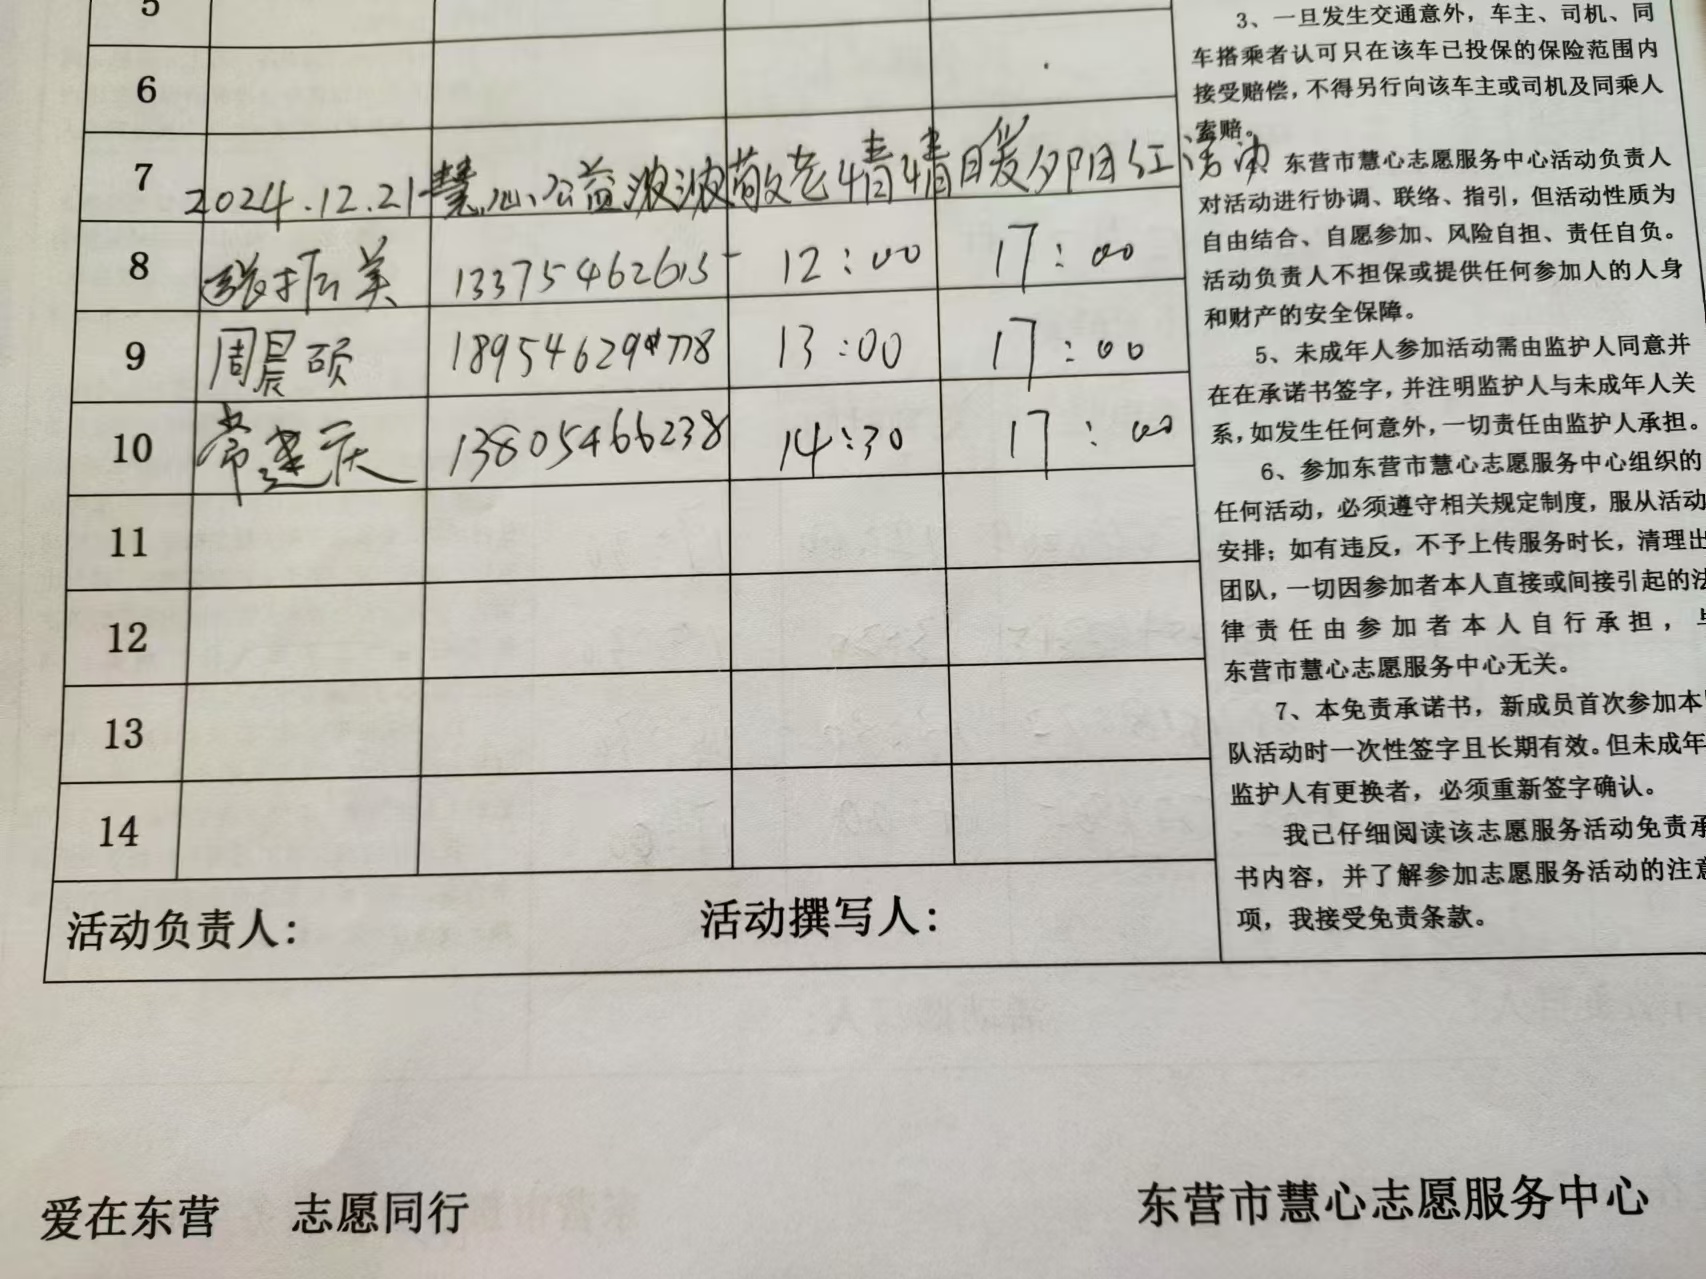 5
6
7 2024.12.21慧心公益波波敬老情情暖夕阳红活动
8 13375462615 12:00 17:00
9 周晨硕 1895462978 13:00 17:00
10 常建庆 13805466238 14:30 17:00
11
12
13
14
活动负责人: 活动撰写人:
3、一旦发生交通意外，车主、司机、同
车搭乘者认可只在该车已投保的保险范围内
接受赔偿，不得另行向该车主或司机及同乘人
索赔。
东营市慧心志愿服务中心活动负责人
对活动进行协调、联络、指引，但活动性质为
自由结合、自愿参加、风险自担、责任自负。
活动负责人不担保或提供任何参加人的人身
和财产的安全保障。
5、未成年人参加活动需由监护人同意并
在在承诺书签字，并注明监护人与未成年人关
系，如发生任何意外，一切责任由监护人承担。
6、参加东营市慧心志愿服务中心组织的
任何活动，必须遵守相关规定制度，服从活动
安排；如有违反，不予上传服务时长，清理出
团队，一切因参加者本人直接或间接引起的法
律责任由参加者本人自行承担，与
东营市慧心志愿服务中心无关。
7、本免责承诺书，新成员首次参加本
队活动时一次性签字且长期有效。但未成年
监护人有更换者，必须重新签字确认。
我已仔细阅读该志愿服务活动免责承
书内容，并了解参加志愿服务活动的注意
项，我接受免责条款。
爱在东营 志愿同行 东营市慧心志愿服务中心